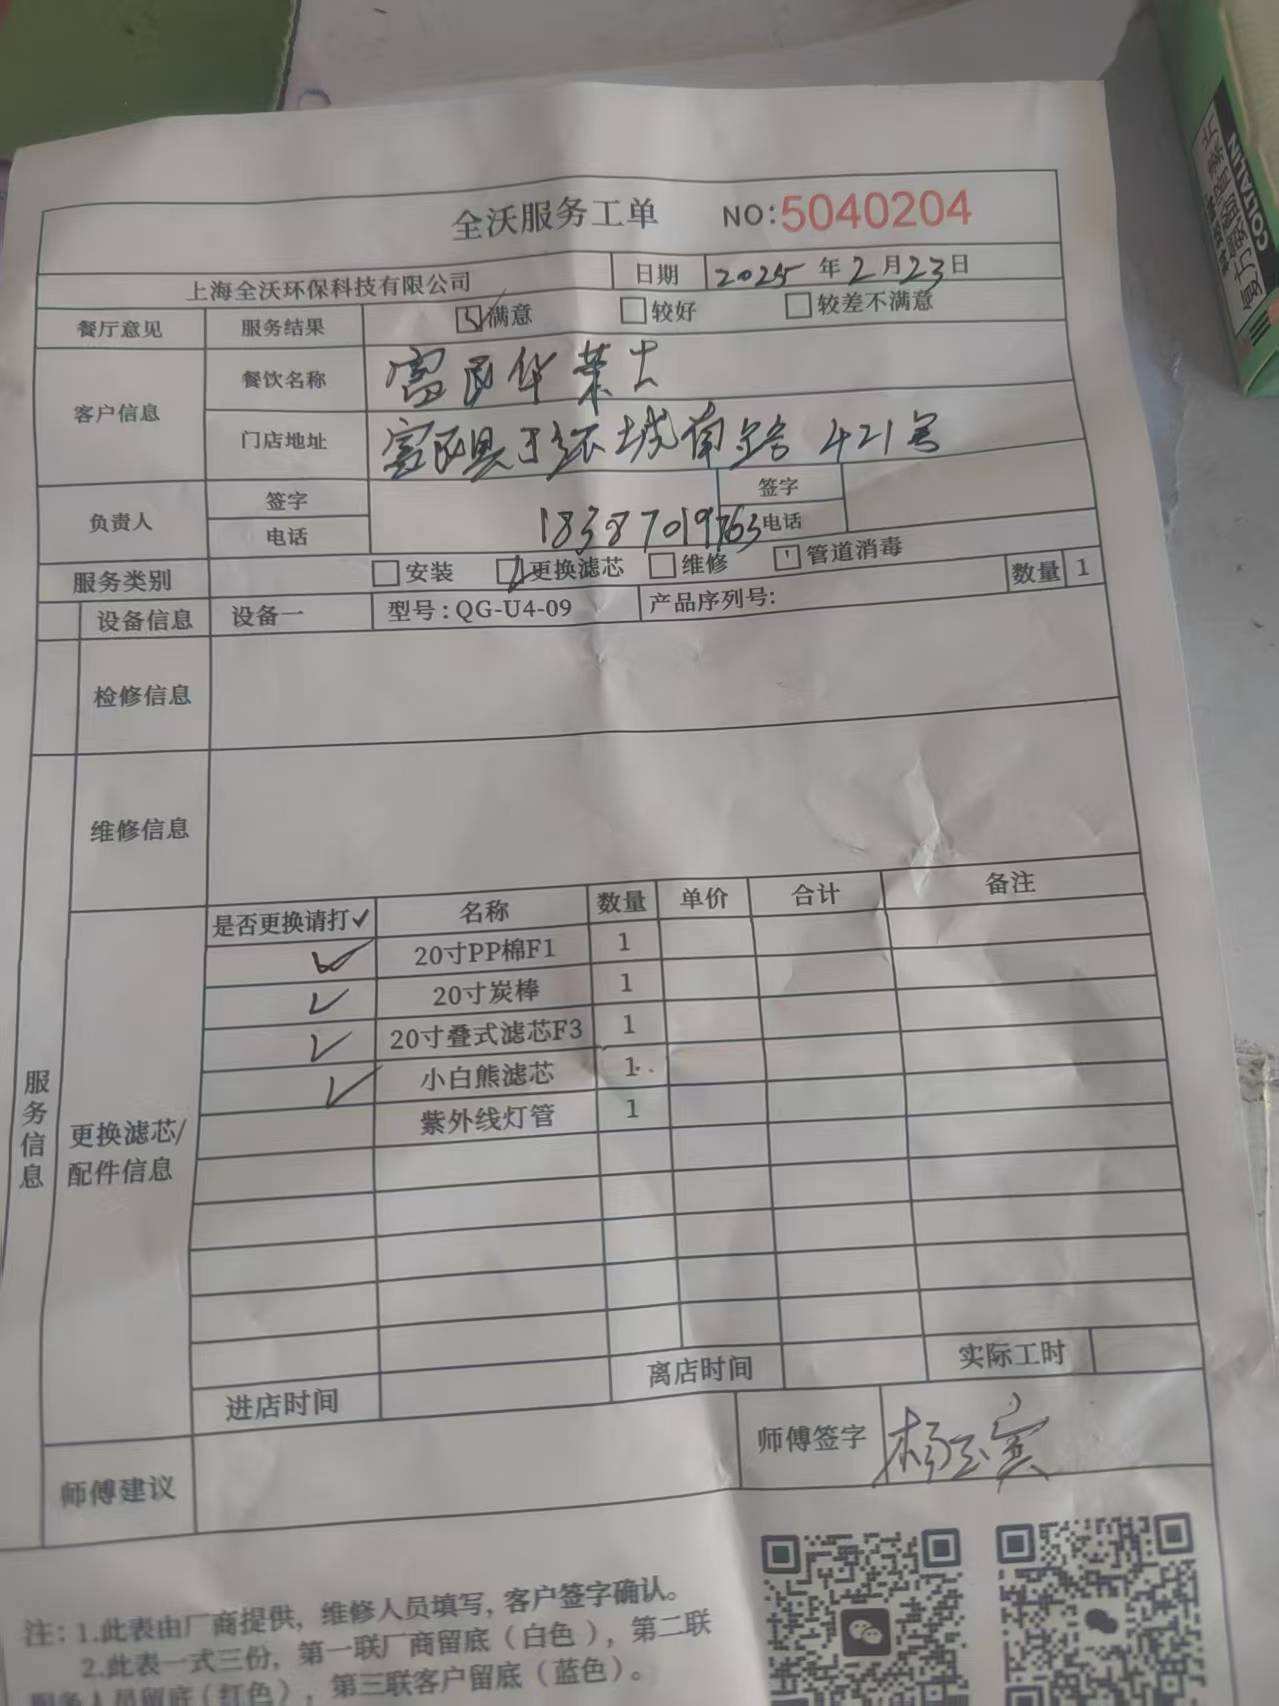 全沃服务工单 NO:5040204
上海全沃环保科技有限公司 日期 2025年2月23日
餐厅意见 服务结果 满意 较好 较差不满意
客户信息 餐饮名称 富民华莱士
门店地址 富民县环城南路421号
负责人 签字 签字
电话 18387019763 电话
服务类别 安装 更换滤芯 维修 管道消毒
设备信息 设备一 型号:QG-U4-09 产品序列号: 数量 1
检修信息
维修信息
服务信息
更换滤芯/配件信息
是否更换请打✓ 名称 数量 单价 合计 备注
✓ 20寸PP棉F1 1
✓ 20寸炭棒 1
✓ 20寸叠式滤芯F3 1
✓ 小白熊滤芯 1
紫外线灯管 1
进店时间 离店时间 实际工时
师傅建议 师傅签字
注:1.此表由厂商提供，维修人员填写，客户签字确认。
2.此表一式三份，第一联厂商留底（白色），第二联
服务人员留底（红色），第三联客户留底（蓝色）。
COLTALIN